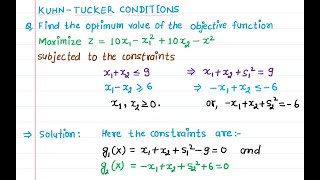 KUHN-TUCKER CONDITIONS
Q Find the optimum value of the objective function
Maximize Z = 10x₁ - x₁² + 10x₂ - x²
subjected to the constraints
x₁+x₂ ≤ 9 ⇒ x₁+x₂+s₁² = 9
x₁-x₂ ≥ 6 ⇒ -x₁+x₂ ≤ -6
x₁, x₂ ≥ 0. or, -x₁+x₂+s₂² = -6
⇒ Solution: Here the constraints are:-
g₁(x) = x₁+x₂+s₁²-9=0 and
g₂(x) = -x₁+x₂+s₂²+6=0